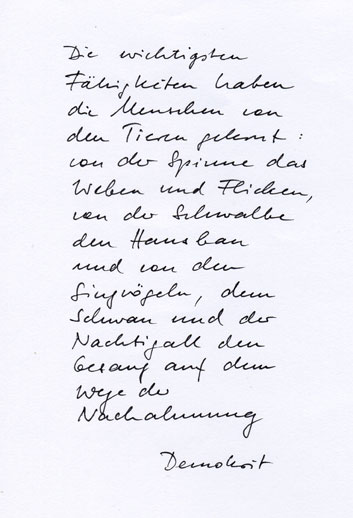 Die wichtigsten
Fähigkeiten haben
die Menschen von
den Tieren gelernt:
von der Spinne das
Weben und Flicken,
von der Schwalbe
den Hausbau
und von den
Singvögeln, dem
Schwan und der
Nachtigall den
Gesang auf dem
Wege der
Nachahmung
Demokrit